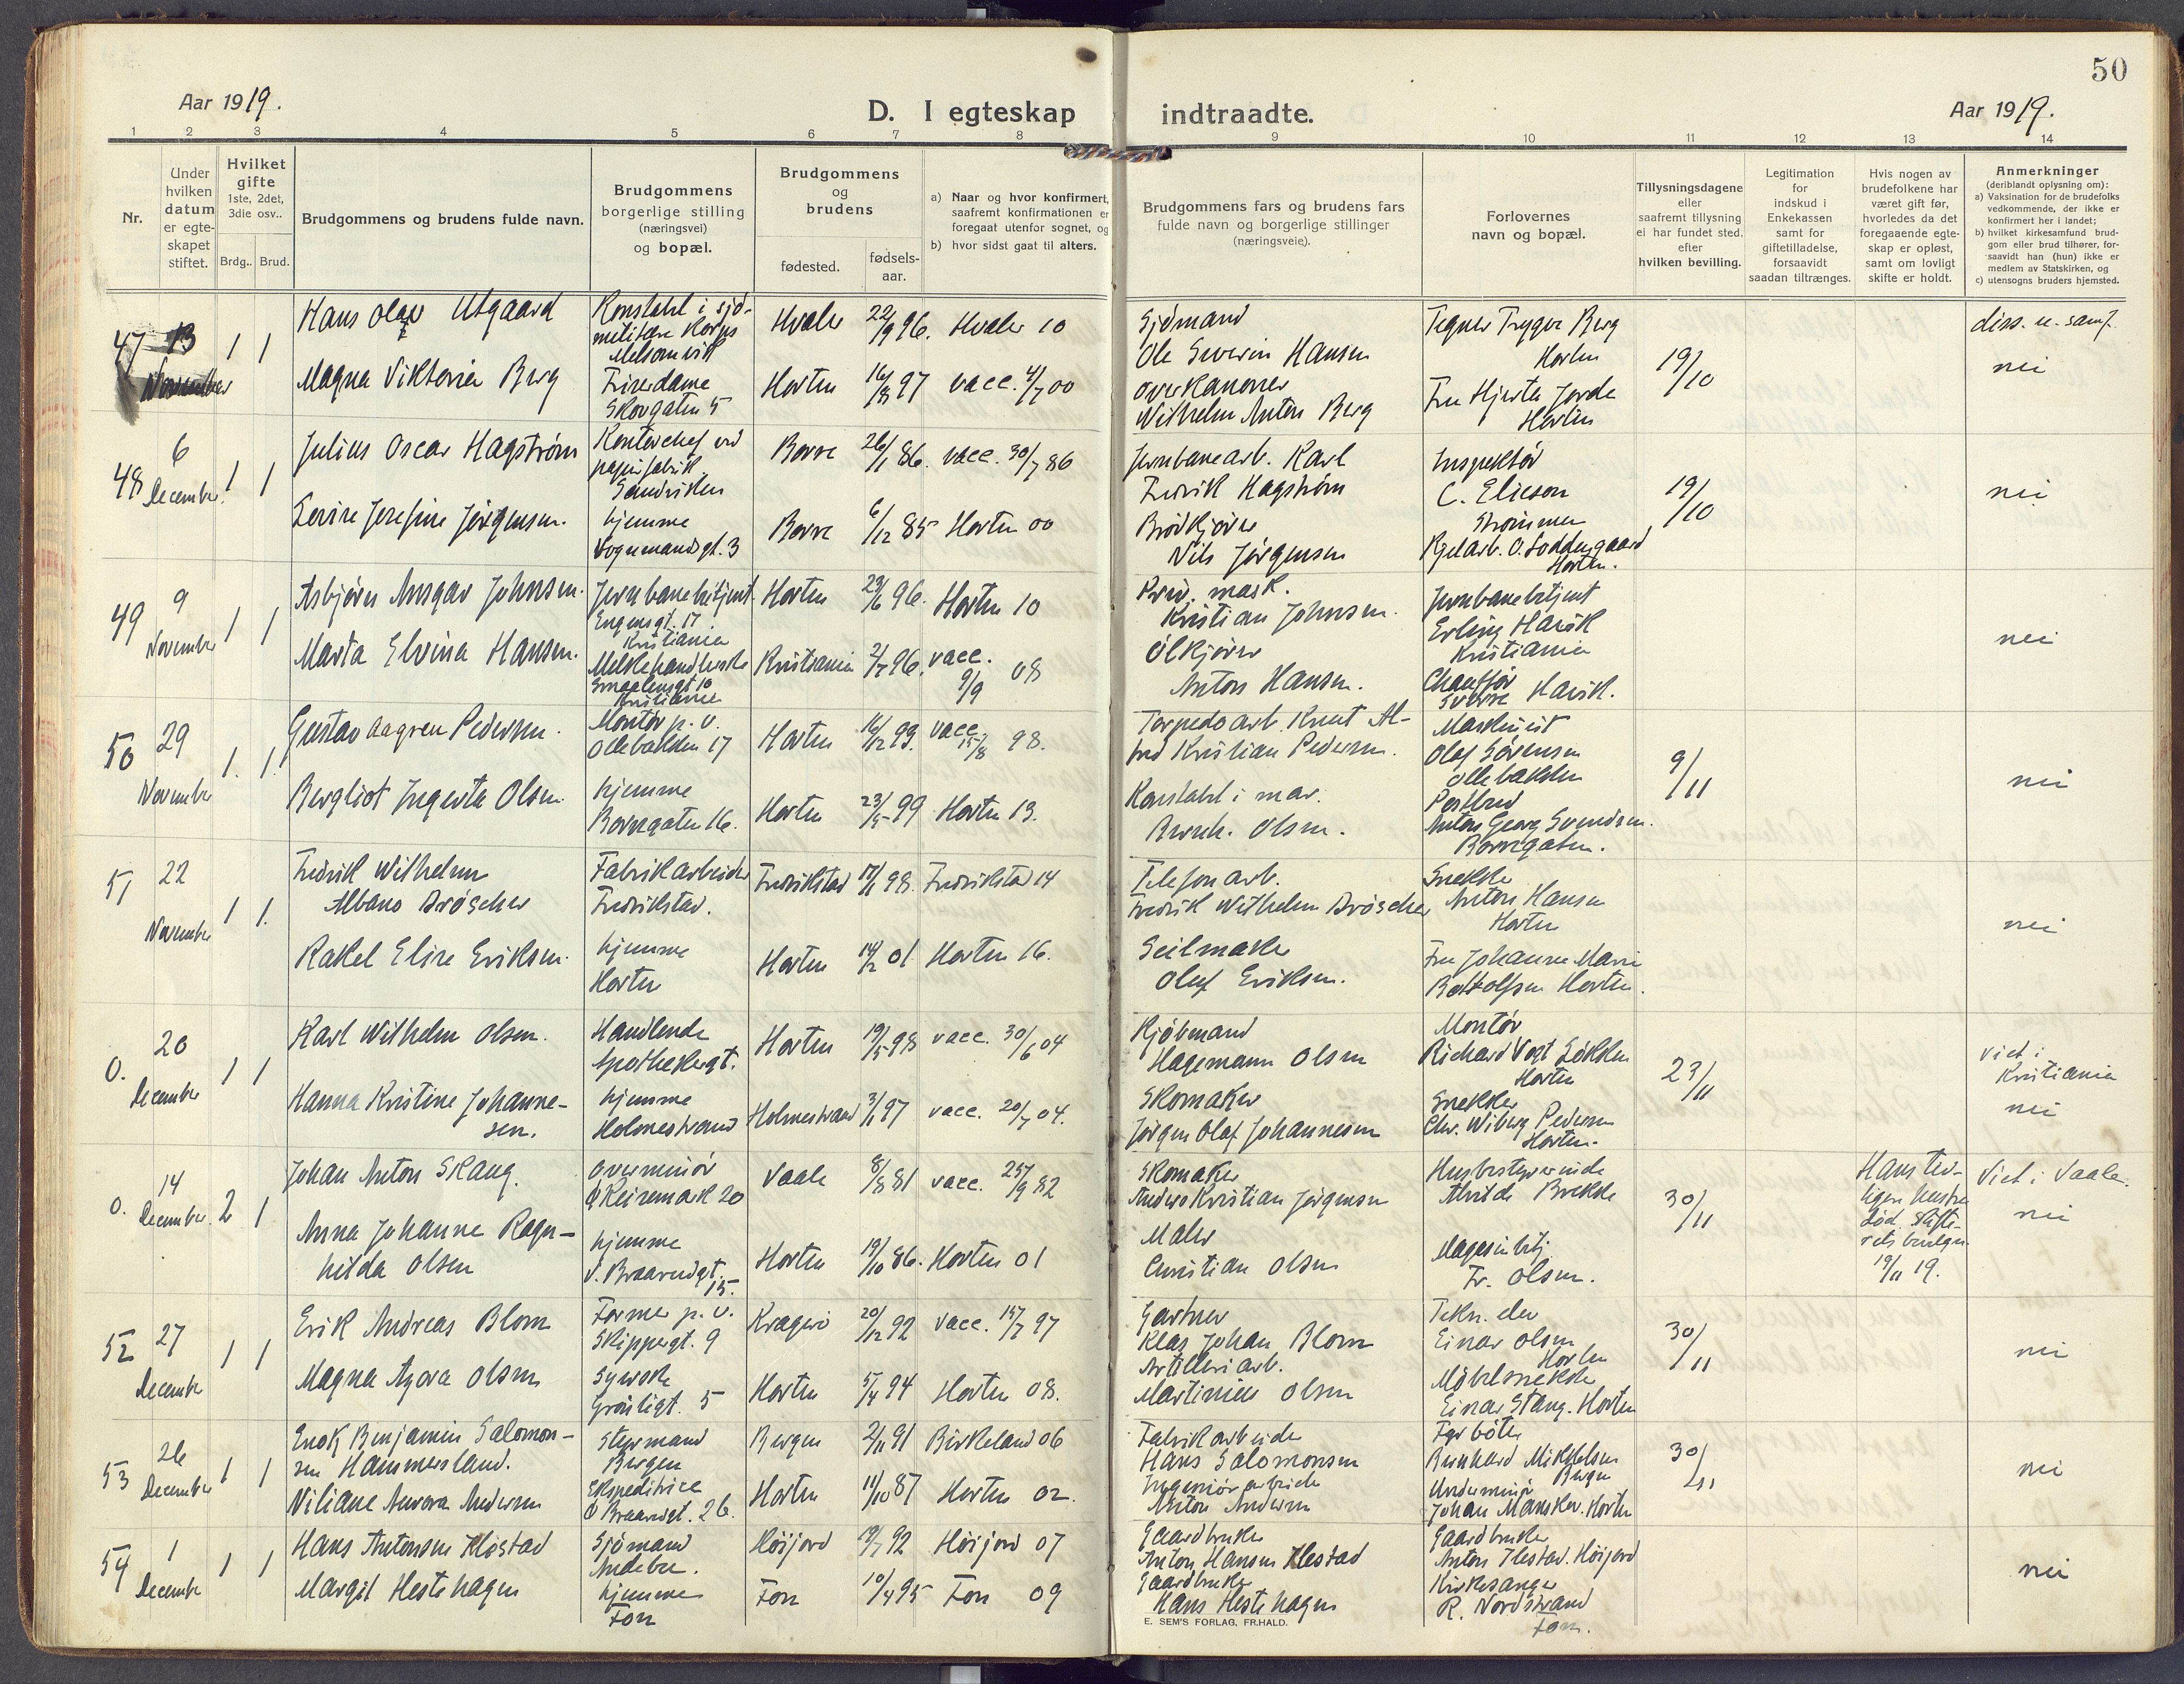 50
Aar 1919.
D. I egteskap indtraadte.
Aar 1919.
1 2 3 4 5 6 7 8 9 10 11 12 13 14
Nr.
Under
hvilken
datum
er egte-
skapet
stiftet.
Hvilket
gifte
1ste, 2det,
3die osv..
Brdg.. Brud.
Brudgommens og brudens fulde navn.
Brudgommens
borgerlige stilling
(næringsvei)
og bopæl.
Brudgommens
og
brudens
fødested.
fødsels-
aar.
a) Naar og hvor konfirmert,
saafremt konfirmationen er
foregaat utenfor sognet, og
b) hvor sidst gaat til alters.
Brudgommens fars og brudens fars
fulde navn og borgerlige stillinger
(næringsveie).
Forlovernes
navn og bopæl.
Tillysningsdagene
eller
saafremt tillysning
ei har fundet sted.
efter
hvilken bevilling.
Legitimation
for
indskud i
Enkekassen
samt for
giftetilladelse,
forsaavidt
saadan tiltrænges.
Hvis nogen av
brudefolkene har
været gift før,
hvorledes da det
foregaaende egte-
skap er opløst,
samt om lovligt
skifte er holdt.
Anmerkninger
(deriblandt oplysning om):
a) Vaksination for de brudefolks
vedkommende, der ikke er
konfirmert her i landet;
b) hvilket kirkesamfund brud-
gom eller brud tilhører, for-
saavidt han (hun) ikke er
medlem av Statskirken, og
c) utensogns bruders hjemsted.
47 13
November
1 1
Hans Olav Utgaard
Magna Viktoria Berg
Konstabel i sjö-
militære korps
Melsomvik
Frisrdame
Skovgaten 5
Hvaler 22/9 96. Hvaler 10
Horten 16/8 97 vacc. 4/7 00
Sjömand
Ole Severin Hansen
Overkanoner
Wilhelm Anton Berg
Tegner Trygve Berg
Horten
Fru Hjerta Jorde
Horten
19/10
diss. u. samf.
nei
48 6
December.
1 1
Julius Oscar Hagström
Serine Josefine Jörgensen.
Kontorchef ved
papirfabrik.
Sandviken
hjemme
Vognmandsgt. 3
Borre 26/1 86. vacc. 30/7 86
Borre 6/12 85 Horten 00
Jernbanearb. Karl
Fredrik Hagström
Brödkjörer
Nils Jörgensen
Inspektör
C. Elieson
Strömmen
Kjelarb. O. Loddengaard
Horten.
19/10
nei
49 9
November
1 1
Asbjörn Ansgar Johnsen.
Marta Elvina Hansen.
Jernbanebetjent
Engensgt. 17.
Kristiania
Melkehandlerske
Smaalensgt 10
Kristiania
Horten 23/6 96. Horten 10
Kristiania 2/7 96. vacc.
9/9 08
Priv. mask.
Kristian Johnsen.
Ölkjörer
Anton Hansen.
Jernbanebetjent
Erling Havik
Kristiania
Chaufför
Sverre Havik.
nei
50 29
November
1. 1.
Gustav Aagren Pedersen.
Bergliot Ingerta Olsen.
Montör p. v.
Ollebakken 17
hjemme
Borregaten 16.
Horten 16/12 93. vacc.
15/8 98.
Horten 23/5 99 Horten 13.
Torpedoarb. Knut Al-
fred Kristian Pedersen.
Konstabel i mar.
Bernh. Olsen.
Maskinist
Olaf Sörensen
Ollebakken
Postbud
Anton Georg Svendsen.
Borregaten.
9/11
nei
51 22
November
1 1.
Fredrik Wilhelm
Albano Dröscher
Rakel Elise Eriksen.
Fabrikarbeider
Fredrikstad.
hjemme
Horten
Fredrikstad 17/1 98. Fredrikstad 14
Horten 14/2 01 Horten 16.
Telefonarb.
Fredrik Wilhelm Dröscher
Seilmaker
Oluf Eriksen.
Snekker
Anton Hansen
Horten
Fru Johanne Marie
Bottolfsen Horten.
nei
0. 20
December
1 1
Karl Wilhelm Olsen.
Hanna Kristine Johanne-
sen.
Handlende
Apothekergt.
hjemme
Holmestrand
Horten 19/5 98 vacc. 30/6 04
Holmestrand 3/1 97 vacc. 20/7 04.
Kjöbmand
Hagemann Olsen
Skomaker
Jörgen Olaf Johannesen
Montör
Richard Vogt Lökken
Horten
Snekker
Chr. Wiberg Pedersen
Horten.
23/11
viet i
Kristiania
nei
0. 14
December.
2 1
Johan Anton Skaug.
Anna Johanne Ragn-
hilda Olsen
Overminör
Ö Keisemark 20
hjemme
V. Braarudgt.
15.
Vaale 8/8 81 vacc. 25/9 82
Horten 19/10 86. Horten 01
Skomaker
Anders Kristian Jörgensen
Maler
Christian Olsen
Husbestyrerinde
Alvilde Brekke
Magasinbetj.
Fr. Olsen.
30/11
Hans tid-
ligere hustru
död. Skifte-
rets bevilgn.
19/11 19.
Viet i Vaale.
nei
52 27
December
1 1
Erik Andreas Blom
Magna Agora Olsen
Former p. v.
Skippergt. 9
Syerske
Grönligt. 5
Kragerö 20/12 92 vacc. 15/7 97
Horten 5/4 94 Horten 08.
Gartner
Klas Johan Blom
Artilleriarb.
Martinius Olsen
Tekn. elev
Einar Olsen
Horten
Möbelsnekker
Einar Stang. Horten
30/11
nei
53 26
December
1 1
Enok Benjamin Salomon-
sen Hammersland.
Viliane Aurora Andersen
Styrmand
Bergen
Ekspeditrice
Ö Braarudgt. 26.
Bergen 2/11 91 Birkeland 06
Horten 11/10 87 Horten 02.
Fabrikarbeider
Hans Salomonsen
Ingeniörarbeider
Anton Andersen
Fyrböter
Bernhard Mikkelsen
Bergen
Underminör
Johan Mansker. Horten
30/11
nei
54 1
December
1 1
Hans Antonsen Klöstad
Margit Hestehagen
Sjömand
Andebu.
hjemme
Fon
Höijord 19/7 92 Höijord 07
Fon 10/4 95 Fon 09
Gaardbruker
Anton Hansen Ilestad
Gaardbruker
Hans Hestehagen
Gaardbruker
Anton Ilestad. Höijord
Kirkesanger
R. Nordstrand
Fon.
nei
E. SEM'S FORLAG, FR.HALD.